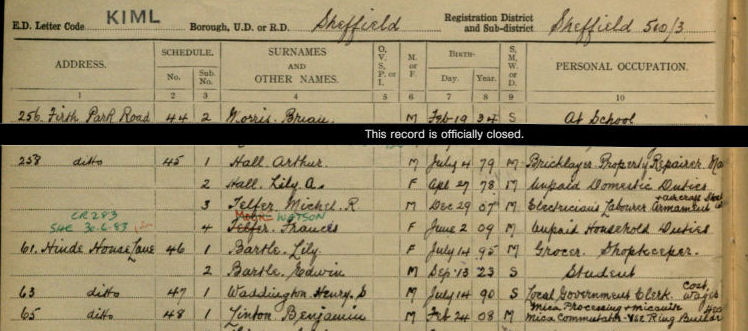 E.D. Letter Code KIML Borough, U.D. or R.D. Sheffield Registration District and Sub-district Sheffield 510/3
ADDRESS. SCHEDULE. SURNAMES AND OTHER NAMES. O. V. S. P. or I. M. or F. BIRTH- S. M. W. or D. PERSONAL OCCUPATION.
No. Sub. No. Day. Year.
1 2 3 4 5 6 7 8 9 10
256. Firth Park Road 44 2 Morris. Brian M Feb 19 34 S At School
This record is officially closed.
258 ditto 45 1 Hall Arthur. M July 4 79 M Bricklayer Property Repairer.
2 Hall. Lily A. F Apl 27 78 M Unpaid Domestic Duties
3 Telfer. Michel. R M Dec 29 07 M Electricians Labourer Armament
CR283 WATSON
30.6.83 4 Telfer. Frances F June 2 09 M Unpaid Household Duties
61. Hinde House Lane 46 1 Bartle. Lily. F July 14 95 M Grocer. Shopkeeper.
2 Bartle. Edwin M Sep 13 23 S Student
63 ditto 47 1 Waddington Henry. S M July 14 90 S Local Government Clerk. Cost, Wages
65 ditto 48 1 Benjamin M Feb 24 08 M Mica Processing Mica Commutator Vee Ring Builder